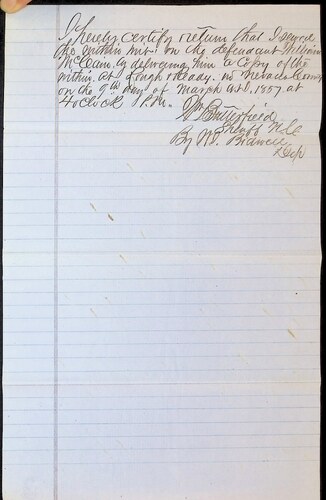 I, Hereby certify return that I served
the within writ on the defendant William
McCain, by delivering him a Copy of the
within, at Rough & Ready in Nevada County
on the 9th day of March A.D. 1857 at
4 oClock P.M.
Wm Butterfield
Sheriff N.C.
By N.I. Bidwell
Dep